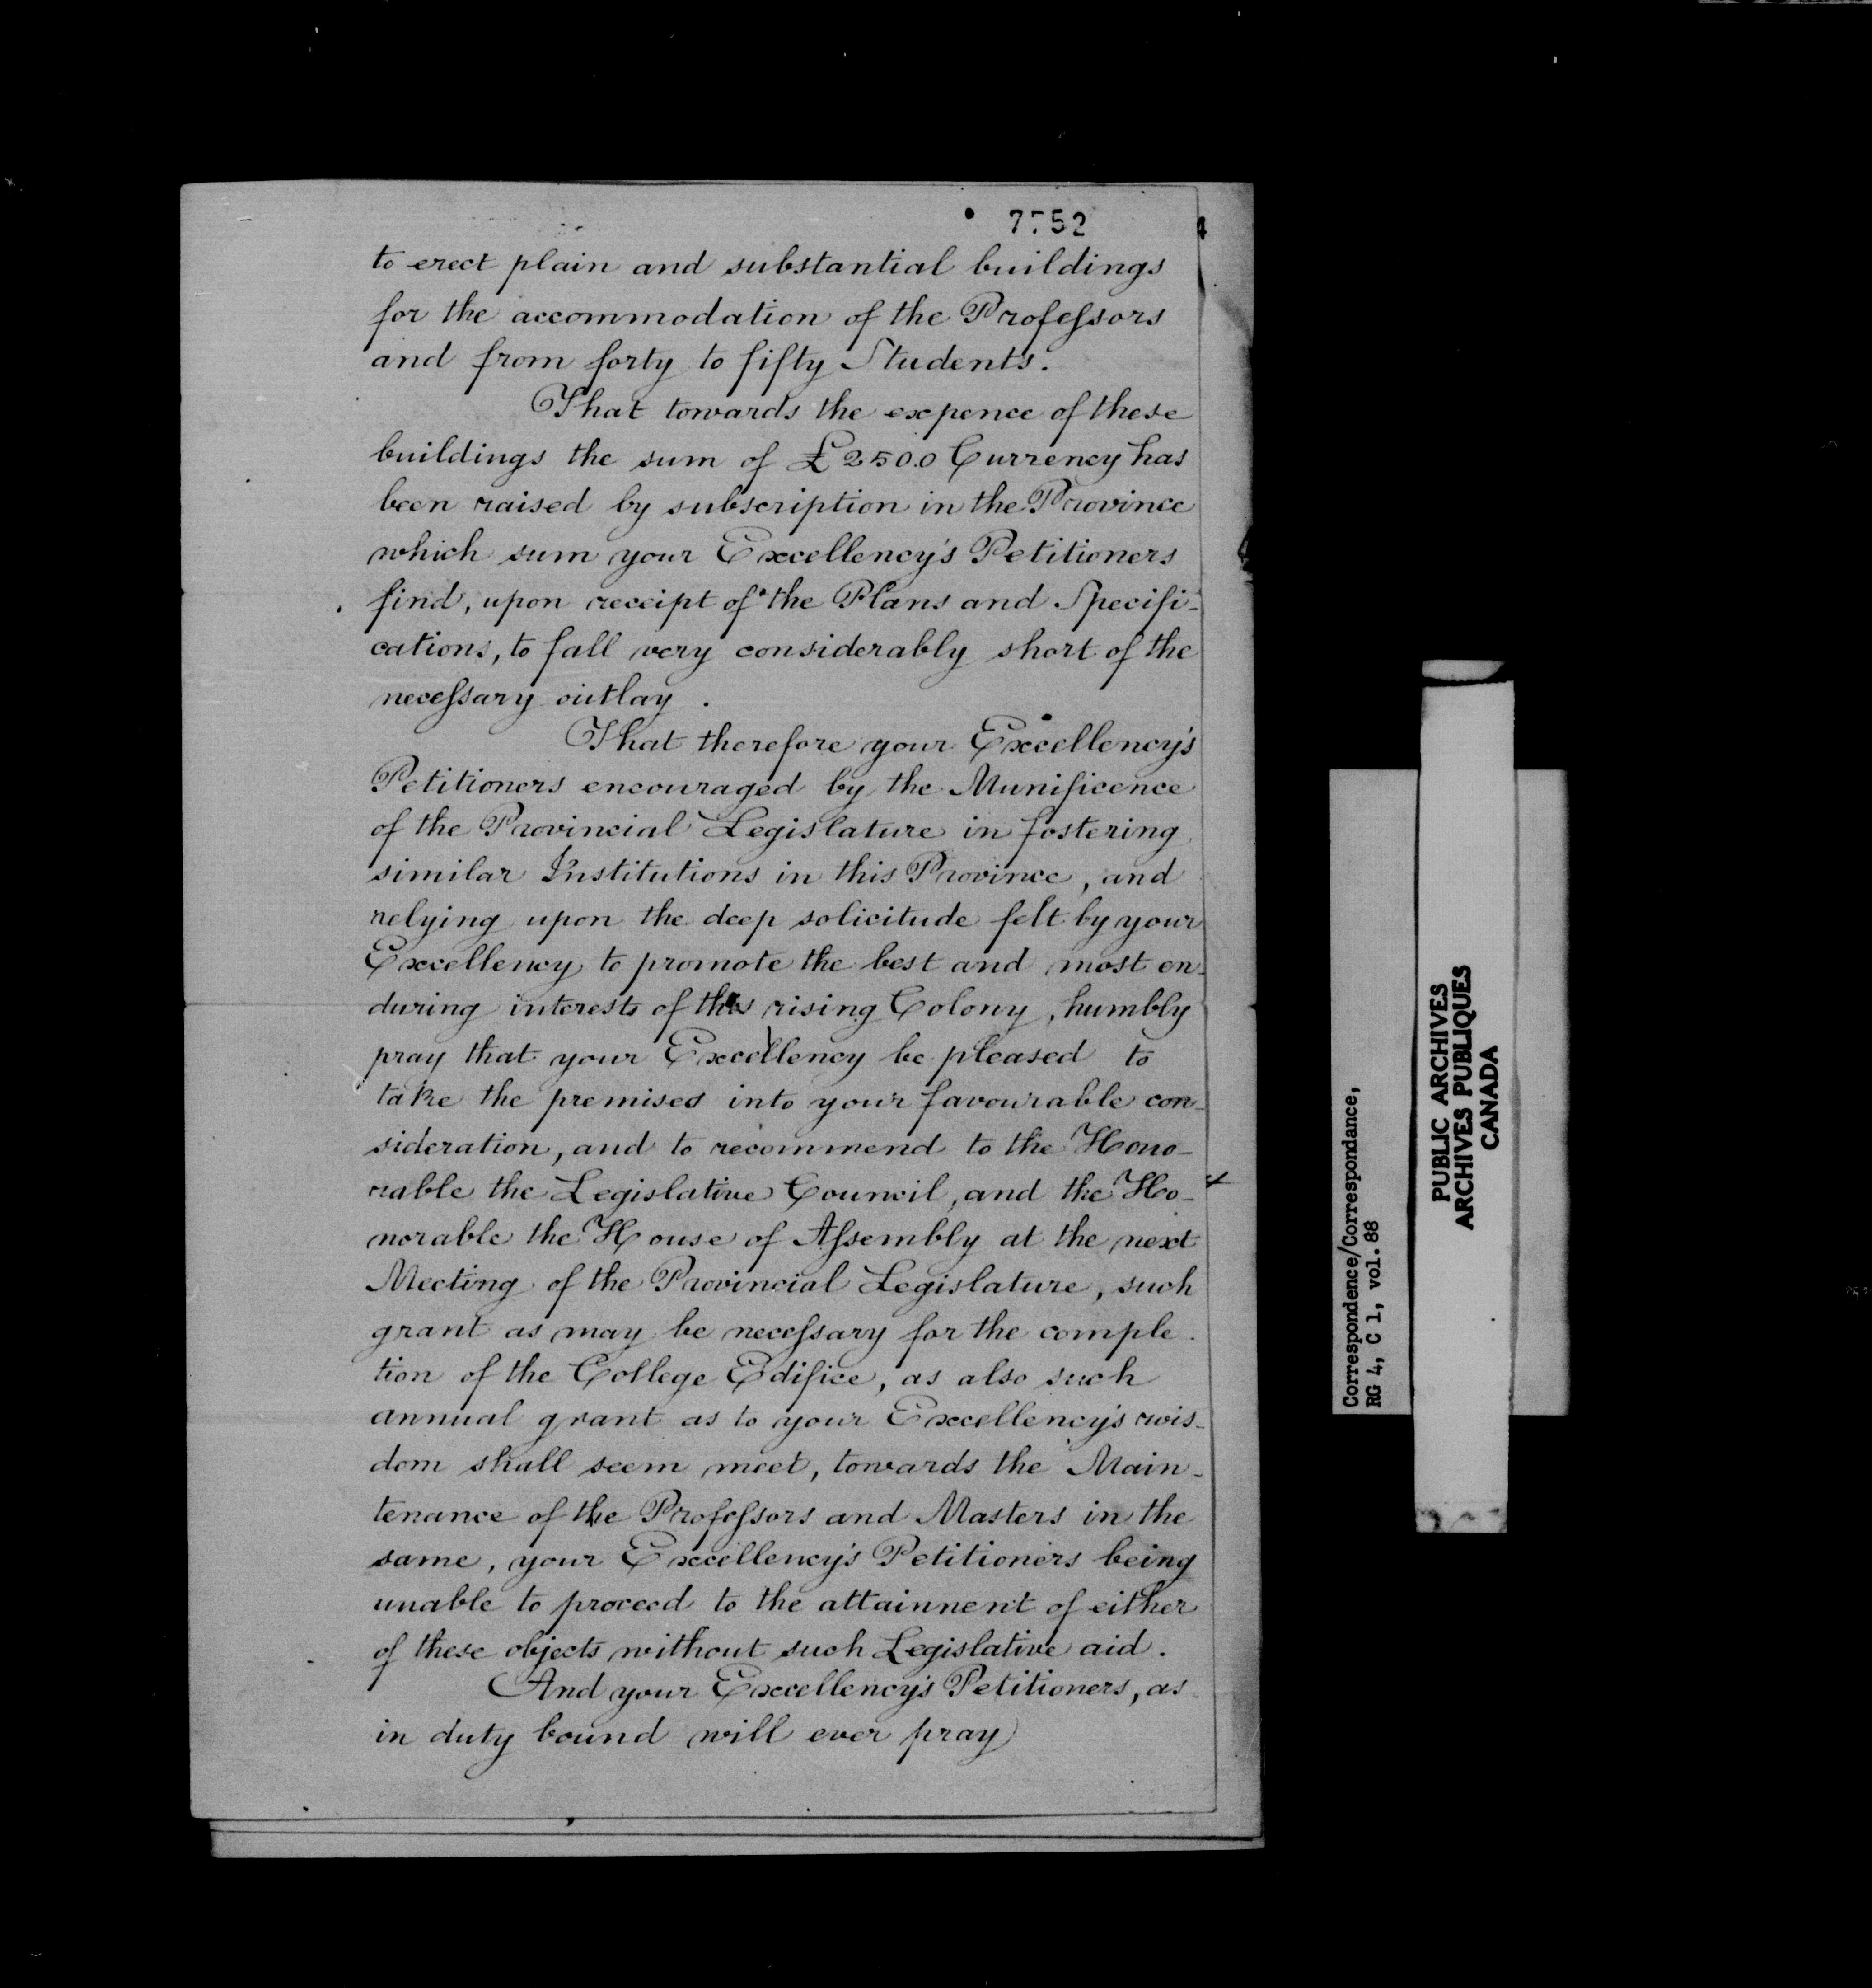 7752
to erect plain and substantial buildings
for the accommodation of the Professors
and from forty to fifty Students.
That towards the expence of these
buildings the sum of £2500 Currency has
been raised by subscription in the Province
which sum your Excellency's Petitioners
find, upon receipt of the Plans and Specifi-
cations, to fall very considerably short of the
necessary outlay.
That therefore your Excellency's
Petitioners encouraged by the Munificence
of the Provincial Legislature in fostering
similar Institutions in this Province, and
relying upon the deep solicitude felt by your
Excellency to promote the best and most en-
during interests of this rising Colony, humbly
pray that your Excellency be pleased to
take the premises into your favourable con-
sideration, and to recommend to the Hono-
rable the Legislative Council, and the Ho-
norable the House of Assembly at the next
Meeting of the Provincial Legislature, such
grant as may be necessary for the comple-
tion of the College Edifice, as also such
annual grant as to your Excellency's wis-
dom shall seem meet, towards the Main-
tenance of the Professors and Masters in the
same, your Excellency's Petitioners being
unable to proceed to the attainment of either
of these objects without such Legislative aid.
And your Excellency's Petitioners, as
in duty bound will ever pray
Correspondence/Correspondance,
RG 4, C 1, vol. 88
PUBLIC ARCHIVES
ARCHIVES PUBLIQUES
CANADA